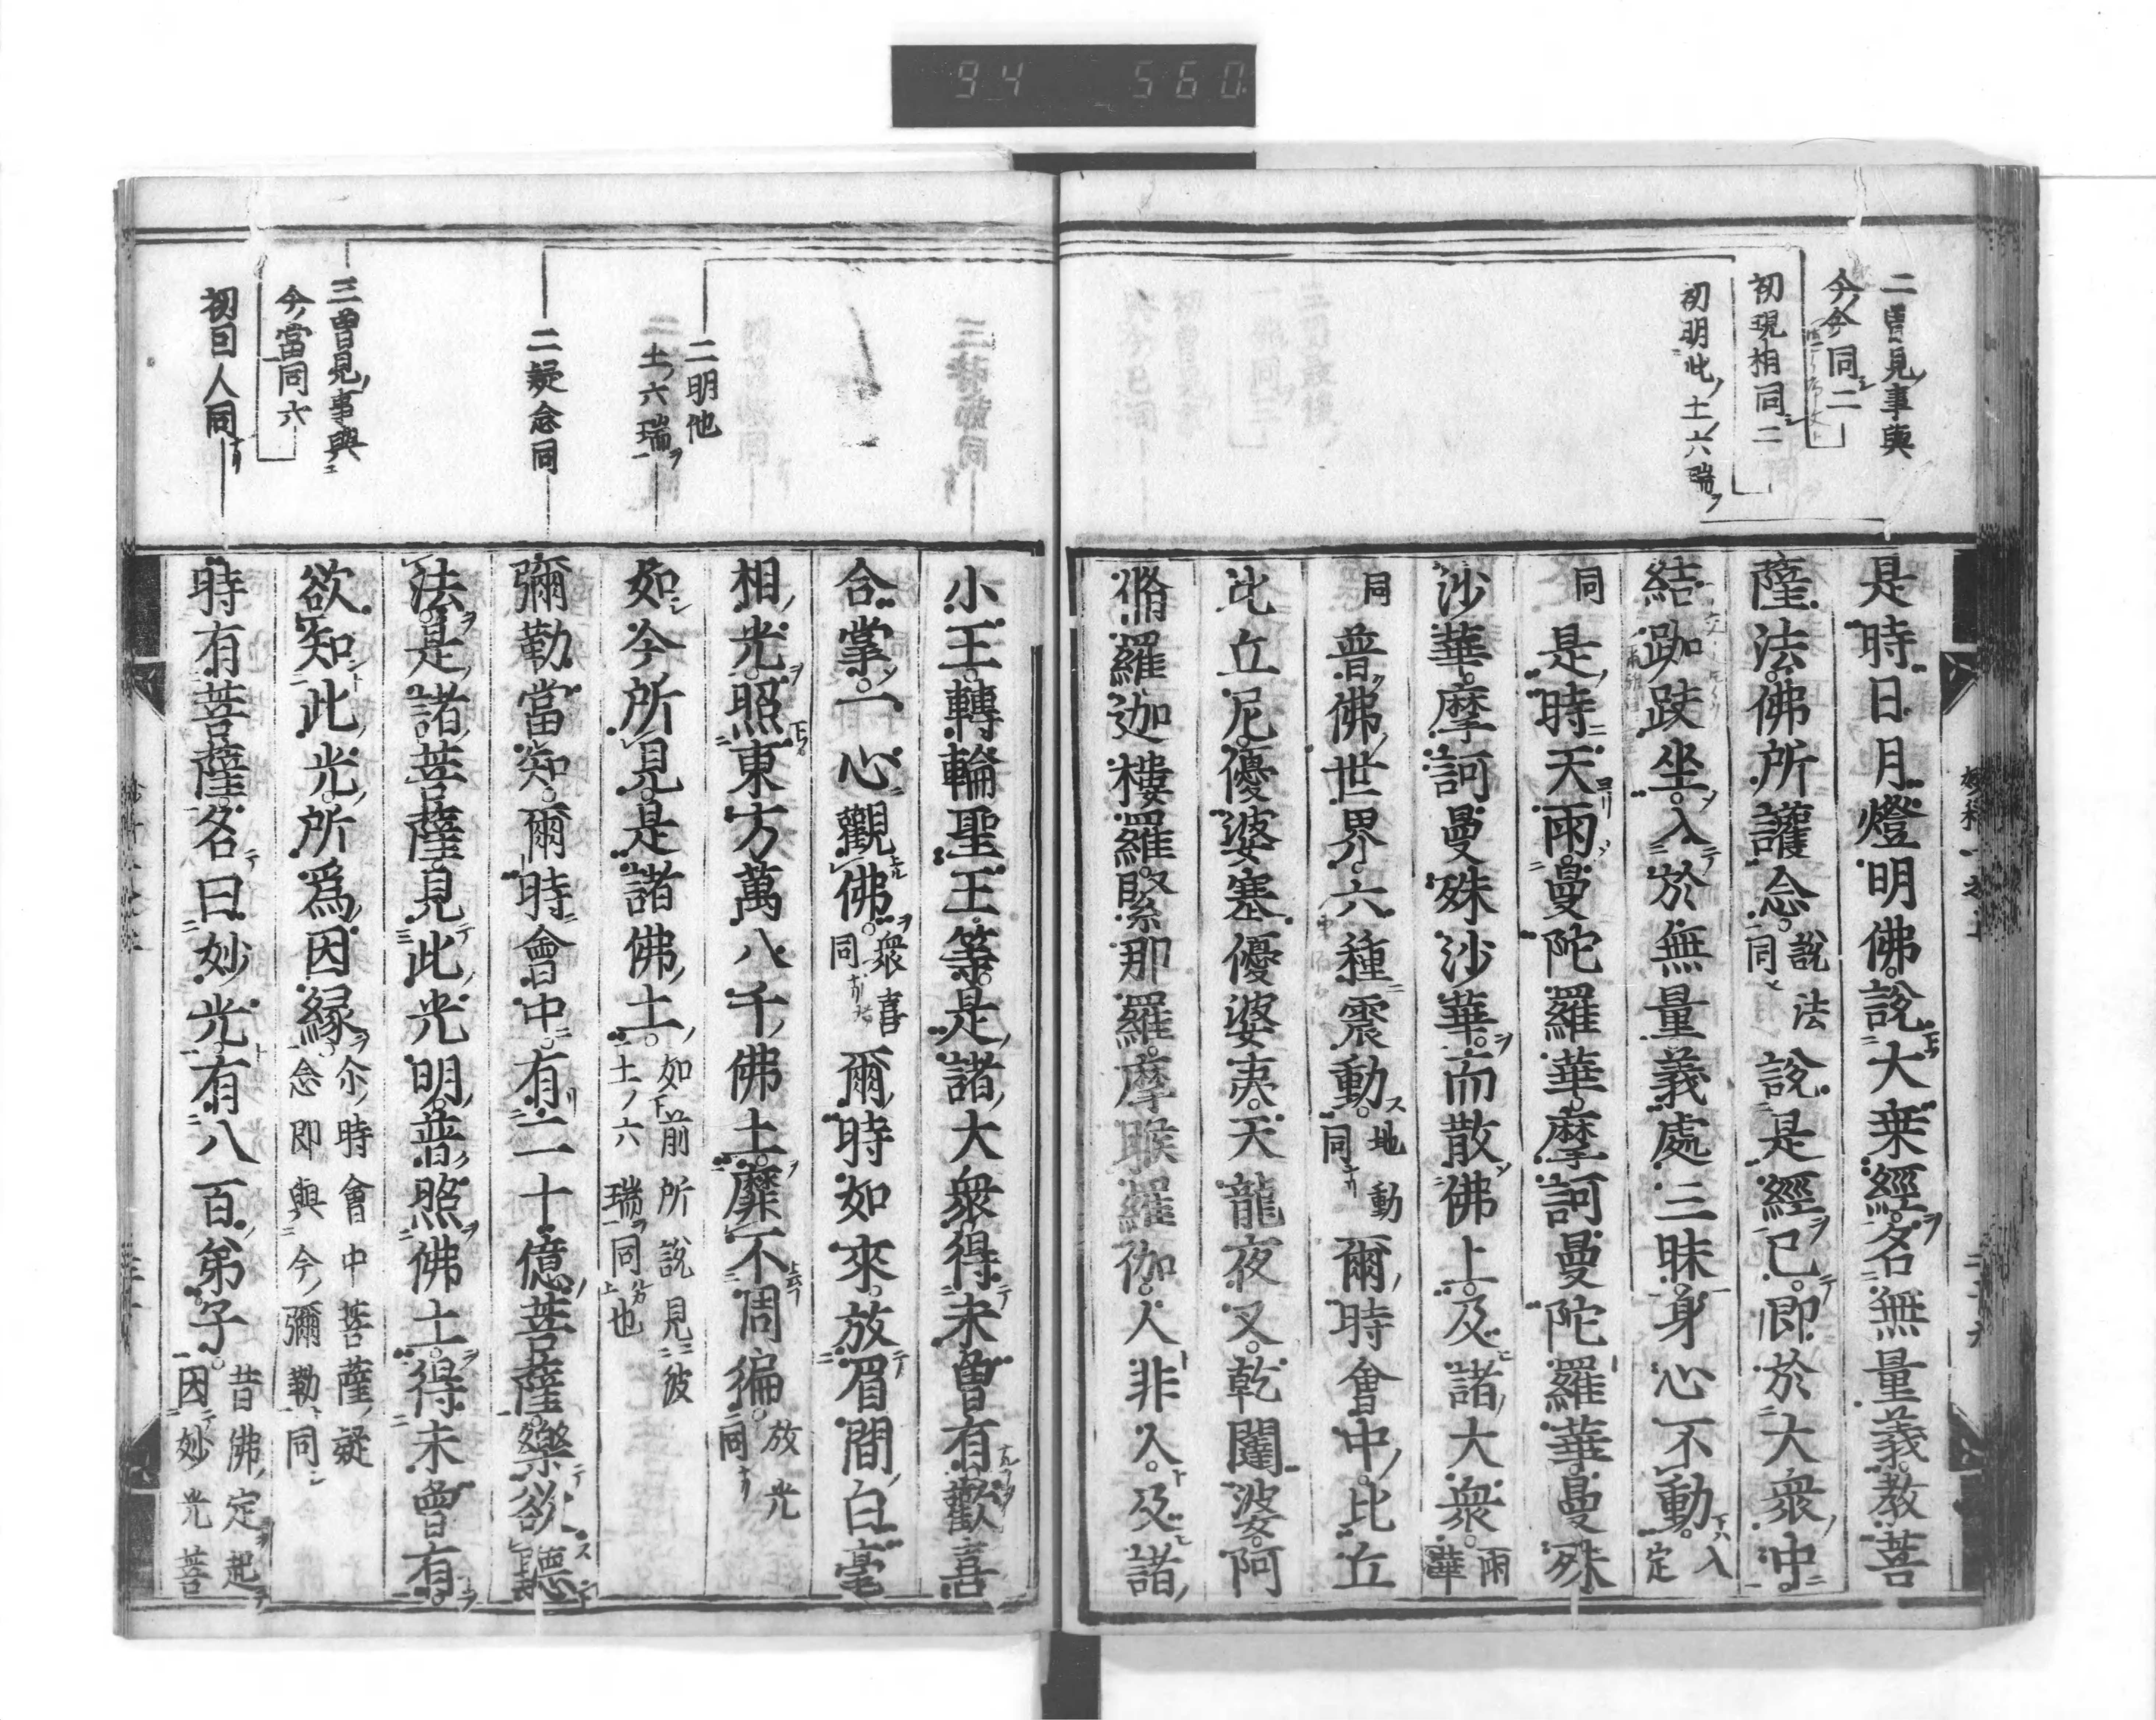 94 560
二曽見事與
今今同二
初現相同二
初明此土六瑞
是時日月燈明佛說大乗經名無量義教菩
薩法佛所護念說法同說是經已即於大衆中
結跏趺坐入於無量義處三昧身心不動入定
同是時天雨曼陀羅華摩訶曼陀羅華曼殊
沙華摩訶曼殊沙華而散佛上及諸大衆雨華
同普佛世界六種震動地動同爾時會中比丘
比丘尼優婆塞優婆夷天龍夜叉乾闥婆阿
脩羅迦樓羅緊那羅摩睺羅伽人非人及諸
二明他
土六瑞
二疑念同
三曽見事與
今當同六
初回人同
小王轉輪聖王等是諸大衆得未曾有歡喜
合掌一心觀佛衆喜同爾時如來放眉間白毫
相光照東方萬八千佛土靡不周徧放光同
如今所見是諸佛土如前所說見彼土六瑞同也
彌勒當知爾時會中有二十億菩薩樂欲聽
法是諸菩薩見此光明普照佛土得未曾有
欲知此光所爲因縁尒時會中菩薩疑念即與今彌勒同
時有菩薩名曰妙光有八百弟子昔佛定起因妙光菩